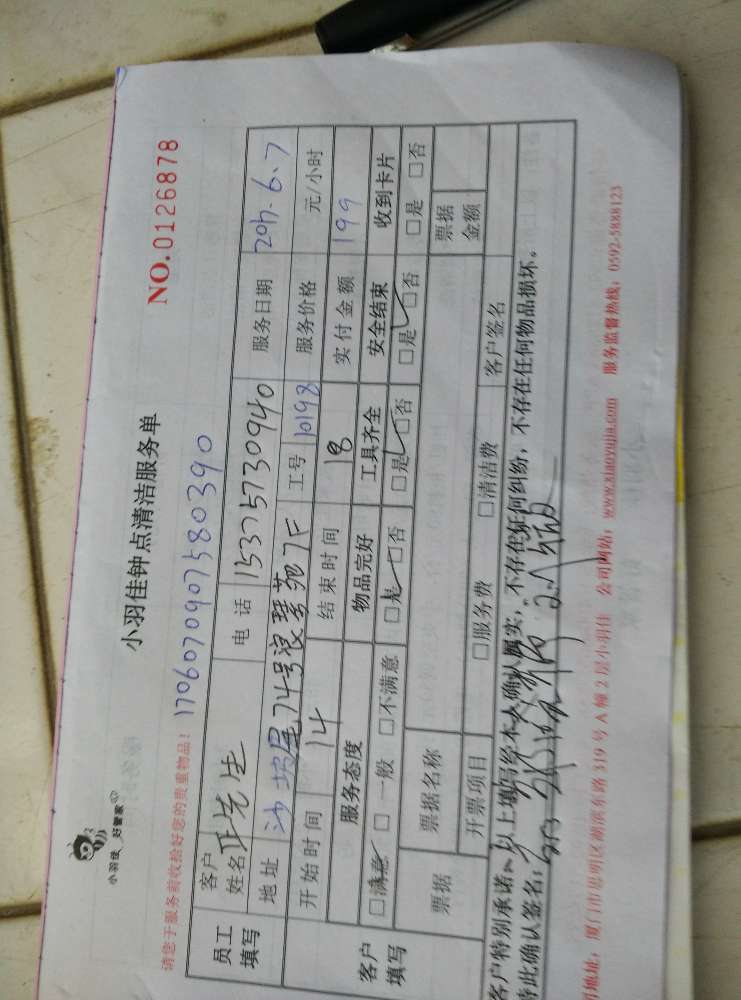 小羽佳 好管家
小羽佳钟点清洁服务单
NO.0126878
请您于服务前收拾好您的贵重物品！ 17060709075580390
员工填写
客户姓名 先生 电话 15375730940 服务日期 2017.6.7
地址 沙坡尾74号浪琴苑7F 工号 10198 服务价格 元/小时
开始时间 14 结束时间 18 实付金额 199
客户填写
服务态度 物品完好 工具齐全 安全结束 收到卡片
□满意 □一般 □不满意 □是 □否 □是 □否 □是 □否 □是 □否
票据 票据名称 票据金额
开票项目 □服务费 □清洁费 客户签名
客户特别承诺：以上填写经本人确认属实，不存在任何纠纷，不存在任何物品损坏。
特此确认签名：
司地址：厦门市思明区湖滨东路319号A幢2层小羽佳 公司网站：www.xiaoyujia.com 服务监督热线：0592-5888123